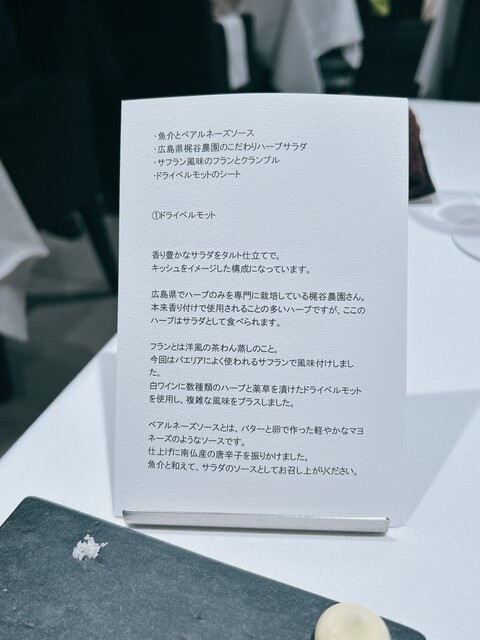 ・魚介とベアルネーズソース
・広島県梶谷農園のこだわりハーブサラダ
・サフラン風味のフランとクランブル
・ドライベルモットのシート
①ドライベルモット
香り豊かなサラダをタルト仕立てで。
キッシュをイメージした構成になっています。
広島県でハーブのみを専門に栽培している梶谷農園さん。
本来香り付けで使用されることの多いハーブですが、ここの
ハーブはサラダとして食べられます。
フランとは洋風の茶わん蒸しのこと。
今回はパエリアによく使われるサフランで風味付けしまし
た。
白ワインに数種類のハーブと薬草を漬けたドライベルモット
を使用し、複雑な風味をプラスしました。
ベアルネーズソースとは、バターと卵で作った軽やかなマヨ
ネーズのようなソースです。
仕上げに南仏産の唐辛子を振りかけました。
魚介と和えて、サラダのソースとしてお召し上がりください。